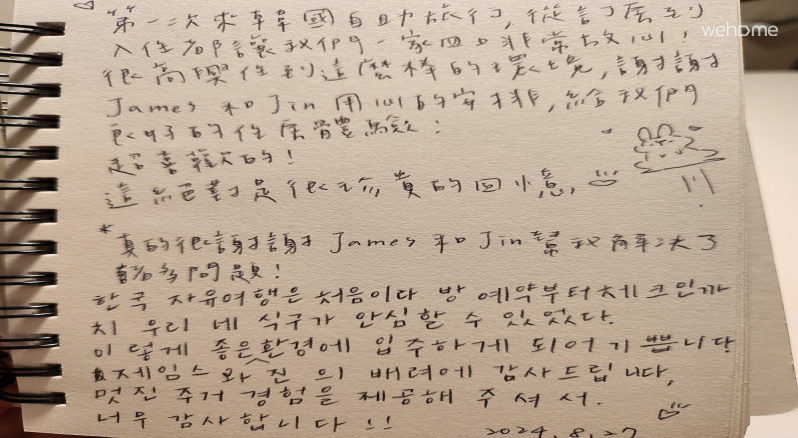 第一次來韓國自助旅行, 從訂房到
入住都讓我們一家四口非常放心,
很高興住到這麼棒的環境, 謝謝
James 和 Jin 用心的安排, 給我們
良好的住房體驗!
超喜歡的!
這絕對是很珍貴的回憶,
*真的很謝謝 James 和 Jin 幫我解決了
許多問題!
한국 자유여행은 처음이다 방 예약부터체크인까
치 우리 네 식구가 안심할 수 있었다.
이렇게 좋은환경에 입주하게 되어기쁩니다
제임스와 진 의 배려에 감사드립니다,
멋진 주거 경험을 제공해 주셔서.
너무 감사합니다!!
2024.8.27
wehome